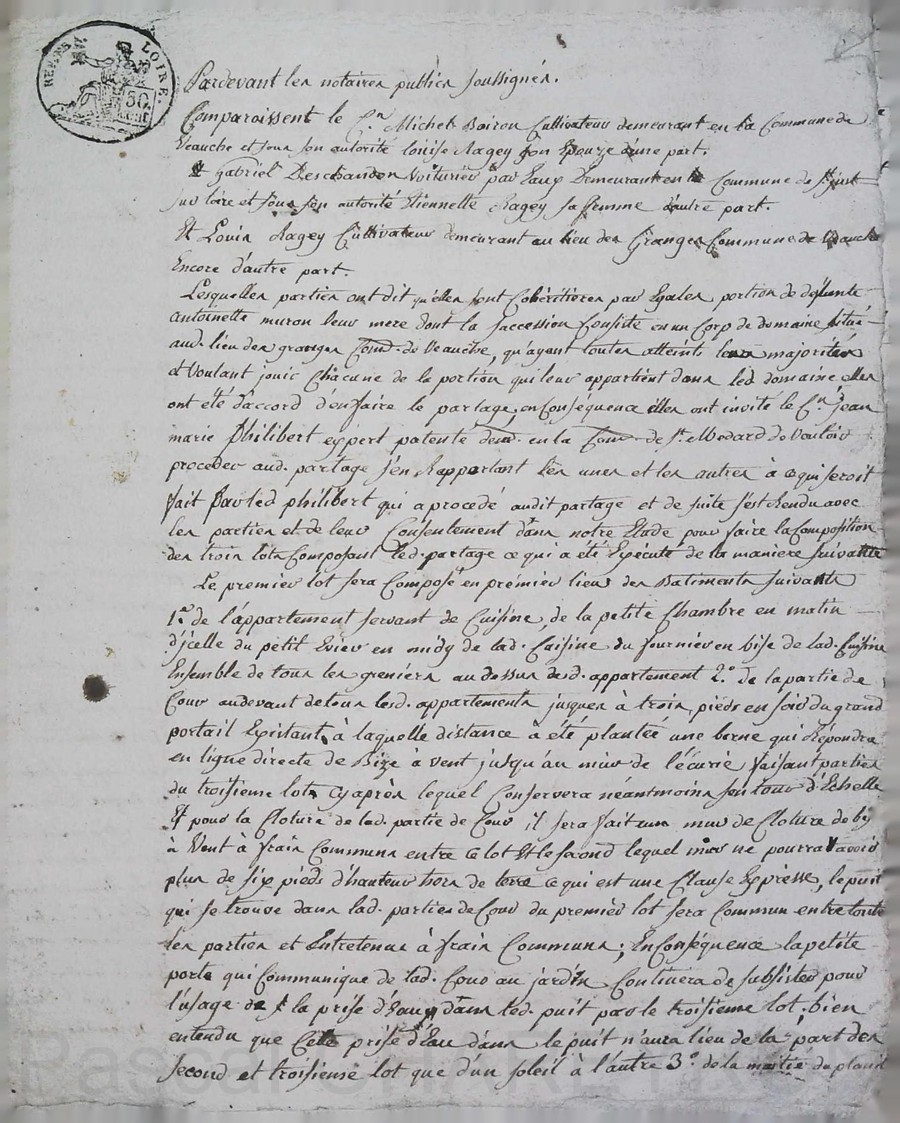 REP. FSE. LOIRE.
50 cent
Pardevant les notaires publics soussignés.
Comparoissent le C.n Michel Boiron Cultivateur demeurant en la Commune de
Veauche et sous son autorité louise Ragey son Epouze d'une part.
Et gabriel Deschandon Voiturier par Eaux Demeurant en la Commune de St just
sur loire et sous son autorité Etiennette Ragey sa femme d'autre part.
Et Louis Ragey Cultivateur demeurant au lieu des Granges Commune de Veauche
Encore d'autre part.
Lesquelles parties ont dit qu'elles sont Cohéritieres par Egales portion de defunte
antoinette muron leur mere dont la succession Consiste en un Corp de domaine situé
aud. lieu des granges Com.e de Veauche, qu'ayant toutes atteint leurs majorités
et Voulant jouir Chacune de la portion qui leur appartient dans led domaine elles
ont été d'accord d'en faire le partage, en Conséquence elles ont invité le C.n jean
marie Philibert expert patenté dem. en la Com.e de St. Medard de Vouloir
proceder aud. partage s'en Rapportant les unes et les autres à ce qui seroit
fait Par led philibert qui a procedé audit partage et de suite s'est Rendu avec
les parties et de leur Consentement dans notre Etude pour faire la Composition
des trois lots Composant led. partage ce qui a été Executé de la maniere suivante
Le premier lot sera Composé en premier lieu des Batiments suivants
1.° de l'appartement servant de Cuisine, de la petite Chambre en matin
d'jcelle du petit Evier en midy de lad. Cuisine du fournier en bise de lad. Cuisine
Ensemble de tous les greniers au dessus desd. appartement 2.° de la partie de
Cour audevant de tous lesd. appartements jusques à trois pieds en soir du grand
portail Existant, à laquelle distance à été plantée une borne qui Répondra
en ligne directe de Bize à vent jusqu'au mur de l'écurie faisant parties
du troisieme lots cy après lequel Conservera néantmoins son tour d'Echelle
Et pour la Cloture de lad. partie de Cour il sera fait un mur de Cloture de by
à Vent à frais Communs entre ce lot Et le second lequel mur ne pourra avoir
plus de six pieds d'hauteur hors de terre ce qui est une Clause Expresse, le puit
qui se trouve dans lad. parties de Cour du premier lot sera Commun entre toute
les parties et Entretenus à frais Communs; En Conséquence la petite
porte qui Communique de lad. Cour au jardin Continera de subsister pour
l'usage de la prise d'Eau dans led. puit par le troisieme lot, bien
entendu que Cette prise d'Eau dans le puit n'aura lieu de la part des
second et troisieme lot que d'un soleil à l'autre 3.° de la moitié du plant